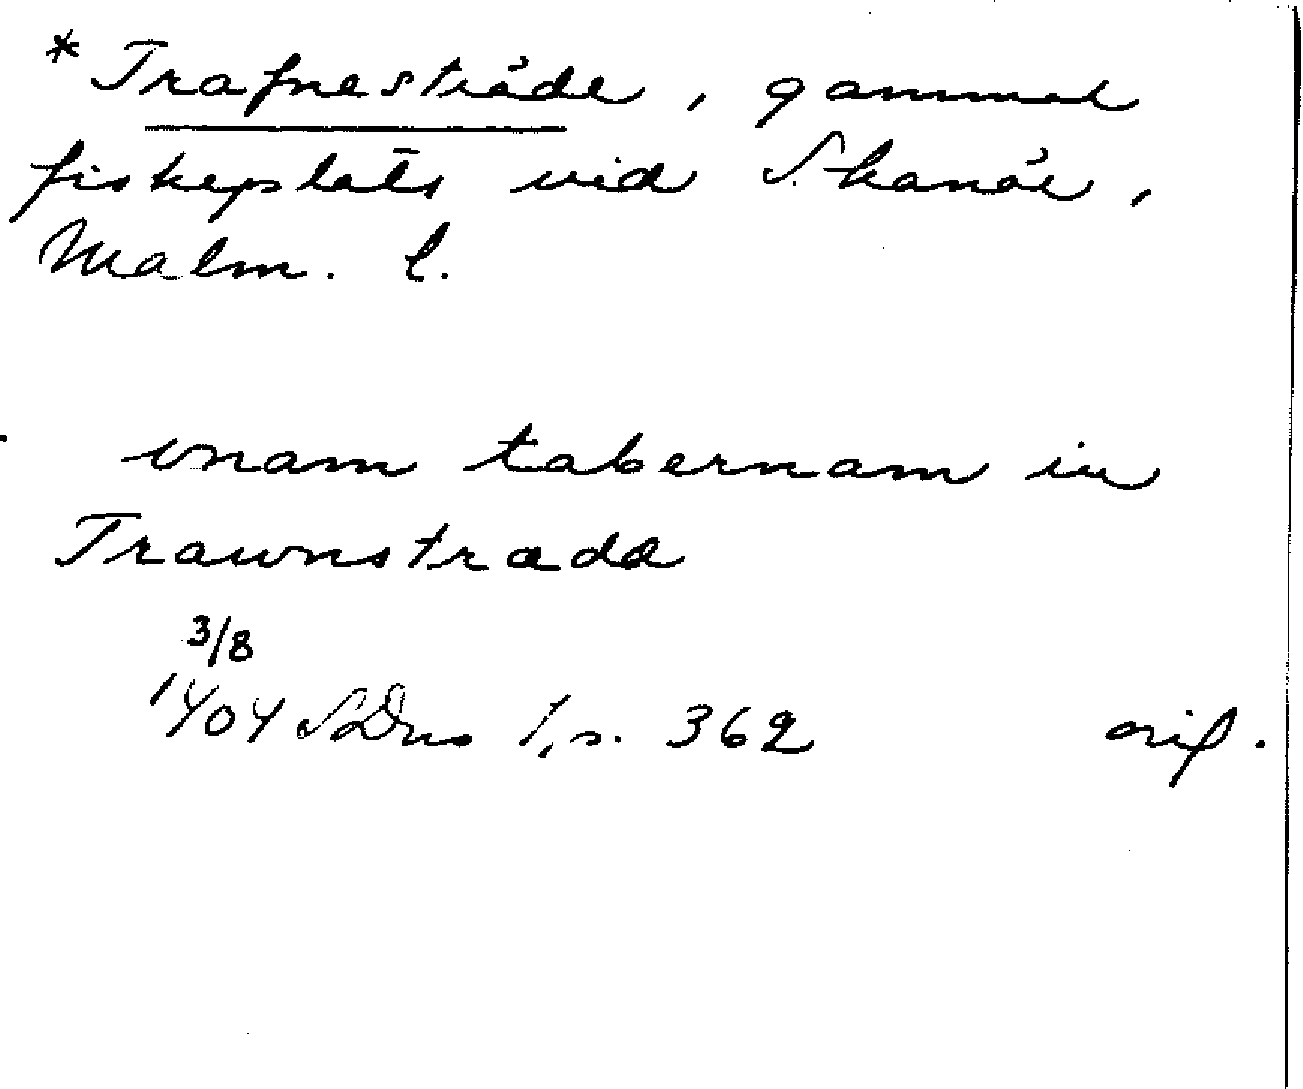 * Trafnesträde, gammal
fiskeplats vid Skanör,
Malm. l.
unam tabernam in
Trawnstræda
3/8
1404 SDns 1, s. 362 orig.